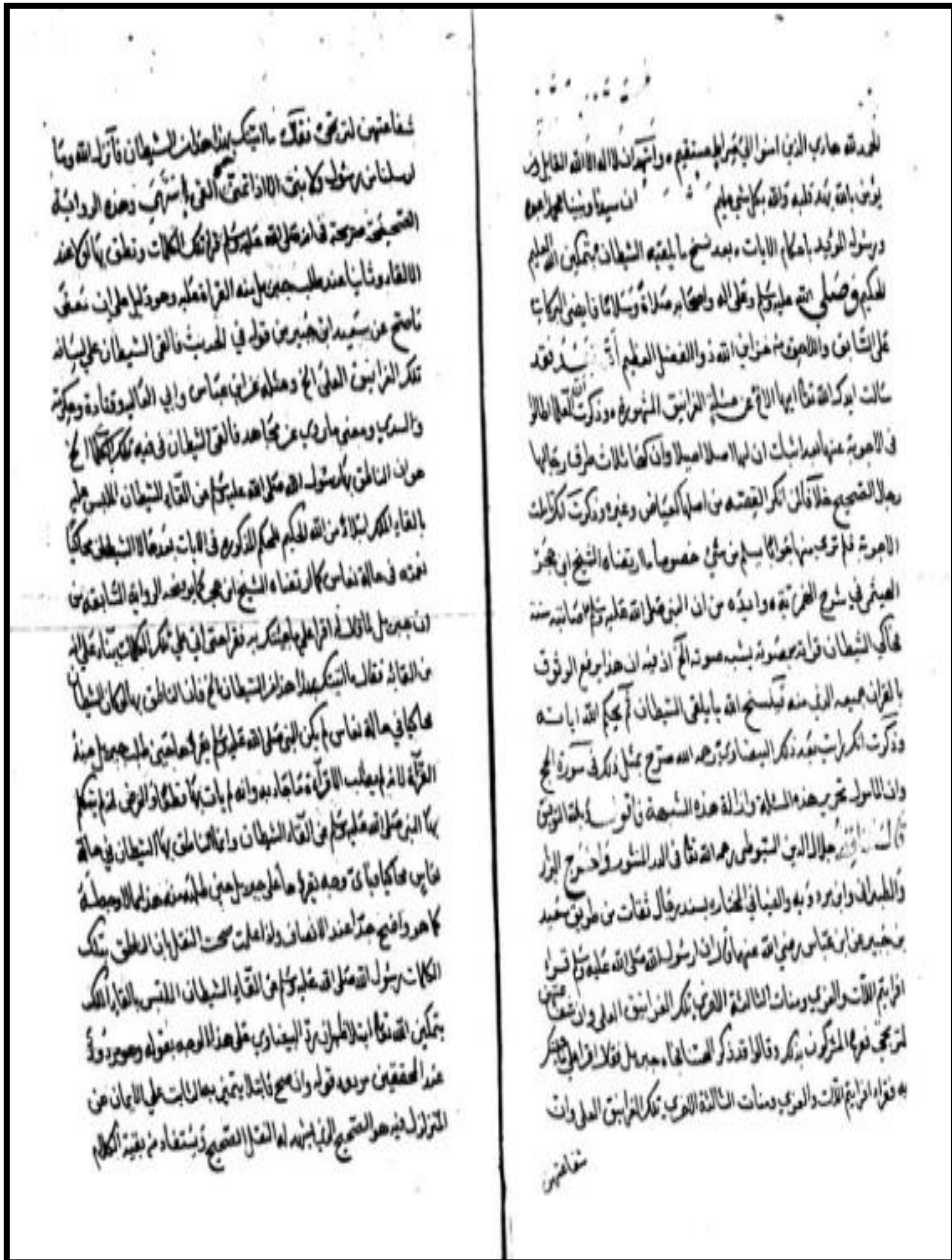 الحمد لله هادي الذين امنوا الى صراط مستقيم واشهد ان لا اله الا الله القايل ومن
يؤمن بالله يهد قلبه والله بكل شي عليم ان سيدنا ونبينا محمدا عبده
ورسوله المؤيد باحكام الايات بعد نسخ ما يلقيه الشيطان بتمكين الله العليم
الحكيم صلى الله عليه وسلم وعلى اله واصحابه صلاة وسلاما فايضى البركات
على السابق واللاحق من خزاين الله ذو الفضل العظيم فقد
سالت ايدك الله تعالى ايها الاخ عن مسئلة الغرانيق المشهورة وذكرت ان العلما اطالوا
في الاجوبة عنها بعد اثبات ان لها اصلا اصيلا وان لها ثلاث طرق رجالها
رجال الصحيح خلافا لمن انكر القصة من اصلها كعياض وغيره وذكرت انك رايت
الاجوبة فلم تر منها جوابا يسلم من شي خصوصا ما ارتضاه الشيخ ابن حجر
الهيتمي في شرح الهمزية وايده من ان النبي صلى الله عليه وسلم
حاكي الشيطان قراته بصوت يشبه صوته الخ اذ فيه ان هذا يرفع الوثوق
بالقران جميعه الذي منه فينسخ الله ما يلقي الشيطان ثم يحكم الله اياته
وذكرت انك رايت بعد ذلك البيضاوي رحمه الله صرح بمثل ذلك في سورة الحج
وان المامول تحرير هذه المسئلة وازالة هذه الشبهة فاقول وبالله التوفيق
قال الحافظ جلال الدين السيوطي رحمه الله تعالى في الدر المنثور واخرج البزار
والطبراني وابن مردويه والضيا في المختارة بسند رجال ثقات من طريق سعيد
بن جبير عن ابن عباس رضي الله عنهما قال ان رسول الله صلى الله عليه وسلم قرا
افرايتم اللات والعزي ومنات الثالثة الاخري تلك الغرانيق العلى وان شفاعتهن
لترتجى ففرح المشركون بذلك وقالوا قد ذكر الهتنا فجاءه جبريل فقال اقرا علي ما جئتك
به فقراء افرايتم اللات والعزي ومنات الثالثة الاخري تلك الغرانيق العلى وان
شفاعتهن
شفاعتهن لترتجى فقال ما اتيتك بهذا هذا من الشيطان فانزل الله وما
ارسلنا من رسول ولا نبي الا اذا تمنى القى انتهى وهذه الرواية
الصحيحة صريحة في انه صلى الله عليه وسلم قرا تلك الكلمات ونطق بها اولا عند
الالقاء وثانيا عند طلب جبريل منه القراة عليه وهو دليل على ان معنى
ما صح عن سعيد ابن جبير من قوله في الحديث فالقى الشيطان على لسانه
تلك الغرانيق العلى الخ ومثله عن ابن عباس وابي العاليه وقتادة وعكرمة
والسدي ومعنى ما روي عن مجاهد فالقى الشيطان في فيه تلك الكلمات الخ
هو ان الناطق بها رسول الله صلى الله عليه وسلم من القاء الشيطان الملبس عليه
بالقاء الملك ابتلاء من الله الحكيم المذكورة في الايات بعدها لا الشيطان محاكيا
نغمته في حالة نعاس كما ارتضاه الشيخ ابن حجر الرواية السابقة من
ان جبريل لما قال له اقرا علي ما جئتك به فقرا تلك الكلمات بناء على انه
من القائه فقال ما اتيتك بهذا هذا من الشيطان الخ فان الناطق بها لو كان الشيطان
محاكيا في حالة نعاس لم يكن النبي صلى الله عليه وسلم يقراها حين طلب جبريل منه
القراة لانه لم يطلب الا قراة ما جاء به وانه لم يات بها قطعا والفرض انه لم يتكلم
بها النبي صلى الله عليه وسلم من القاء الشيطان وانما نطق بها الشيطان في حالة
نعاس محاكيا فباي وجه يقراها على جبريل حين طلبه منه هذا مما لا وجه له
كما هو واضح جدا عند الانصاف واذا علمت صحت النقل بان الناطق بتلك
الكلمات رسول الله صلى الله عليه وسلم من القاء الشيطان الملتبس بالقاء الملك
بتمكين الله تعالى ابتلاء ظهر ان رد البيضاوي على هذا الوجه بقوله وهو مردود
عند المحققين مردود قوله وان صح فابتلا يتميز به الثابت على الايمان من
المتزلزل فيه هو الصحيح الذي يشهد له النقل الصحيح ويستفاد من بقية الكلام